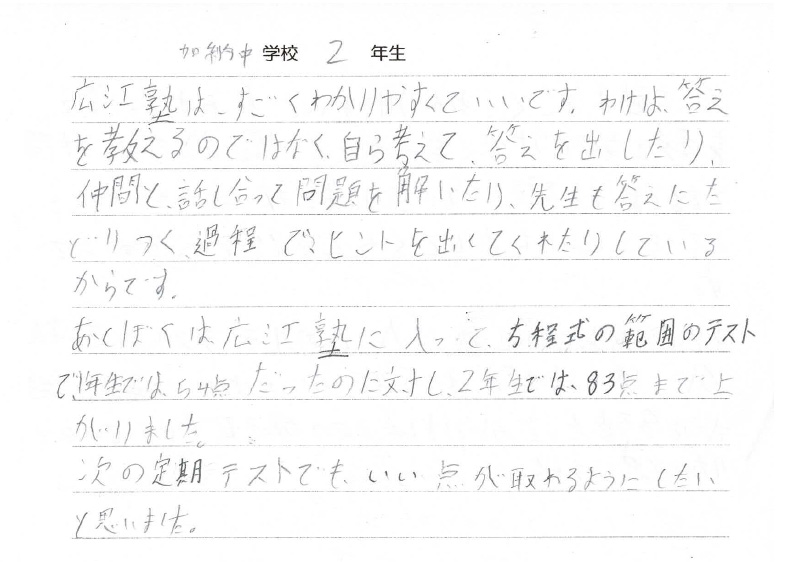 加納中学校 2 年生
広江塾は、すごくわかりやすくていいです。わけは、答え
を教えるのではなく、自ら考えて、答えを出したり、
仲間と、話し合って問題を解いたり、先生も答えにた
どりつく、過程で、ヒントを出してくれたりしている
からです。
ぼくは広江塾に入って、方程式の範囲のテスト
で、1年生では、54点だったのに対し、2年生では、83点まで上
がりました。
次の定期テストでも、いい点が取れるようにしたい
と思いました。